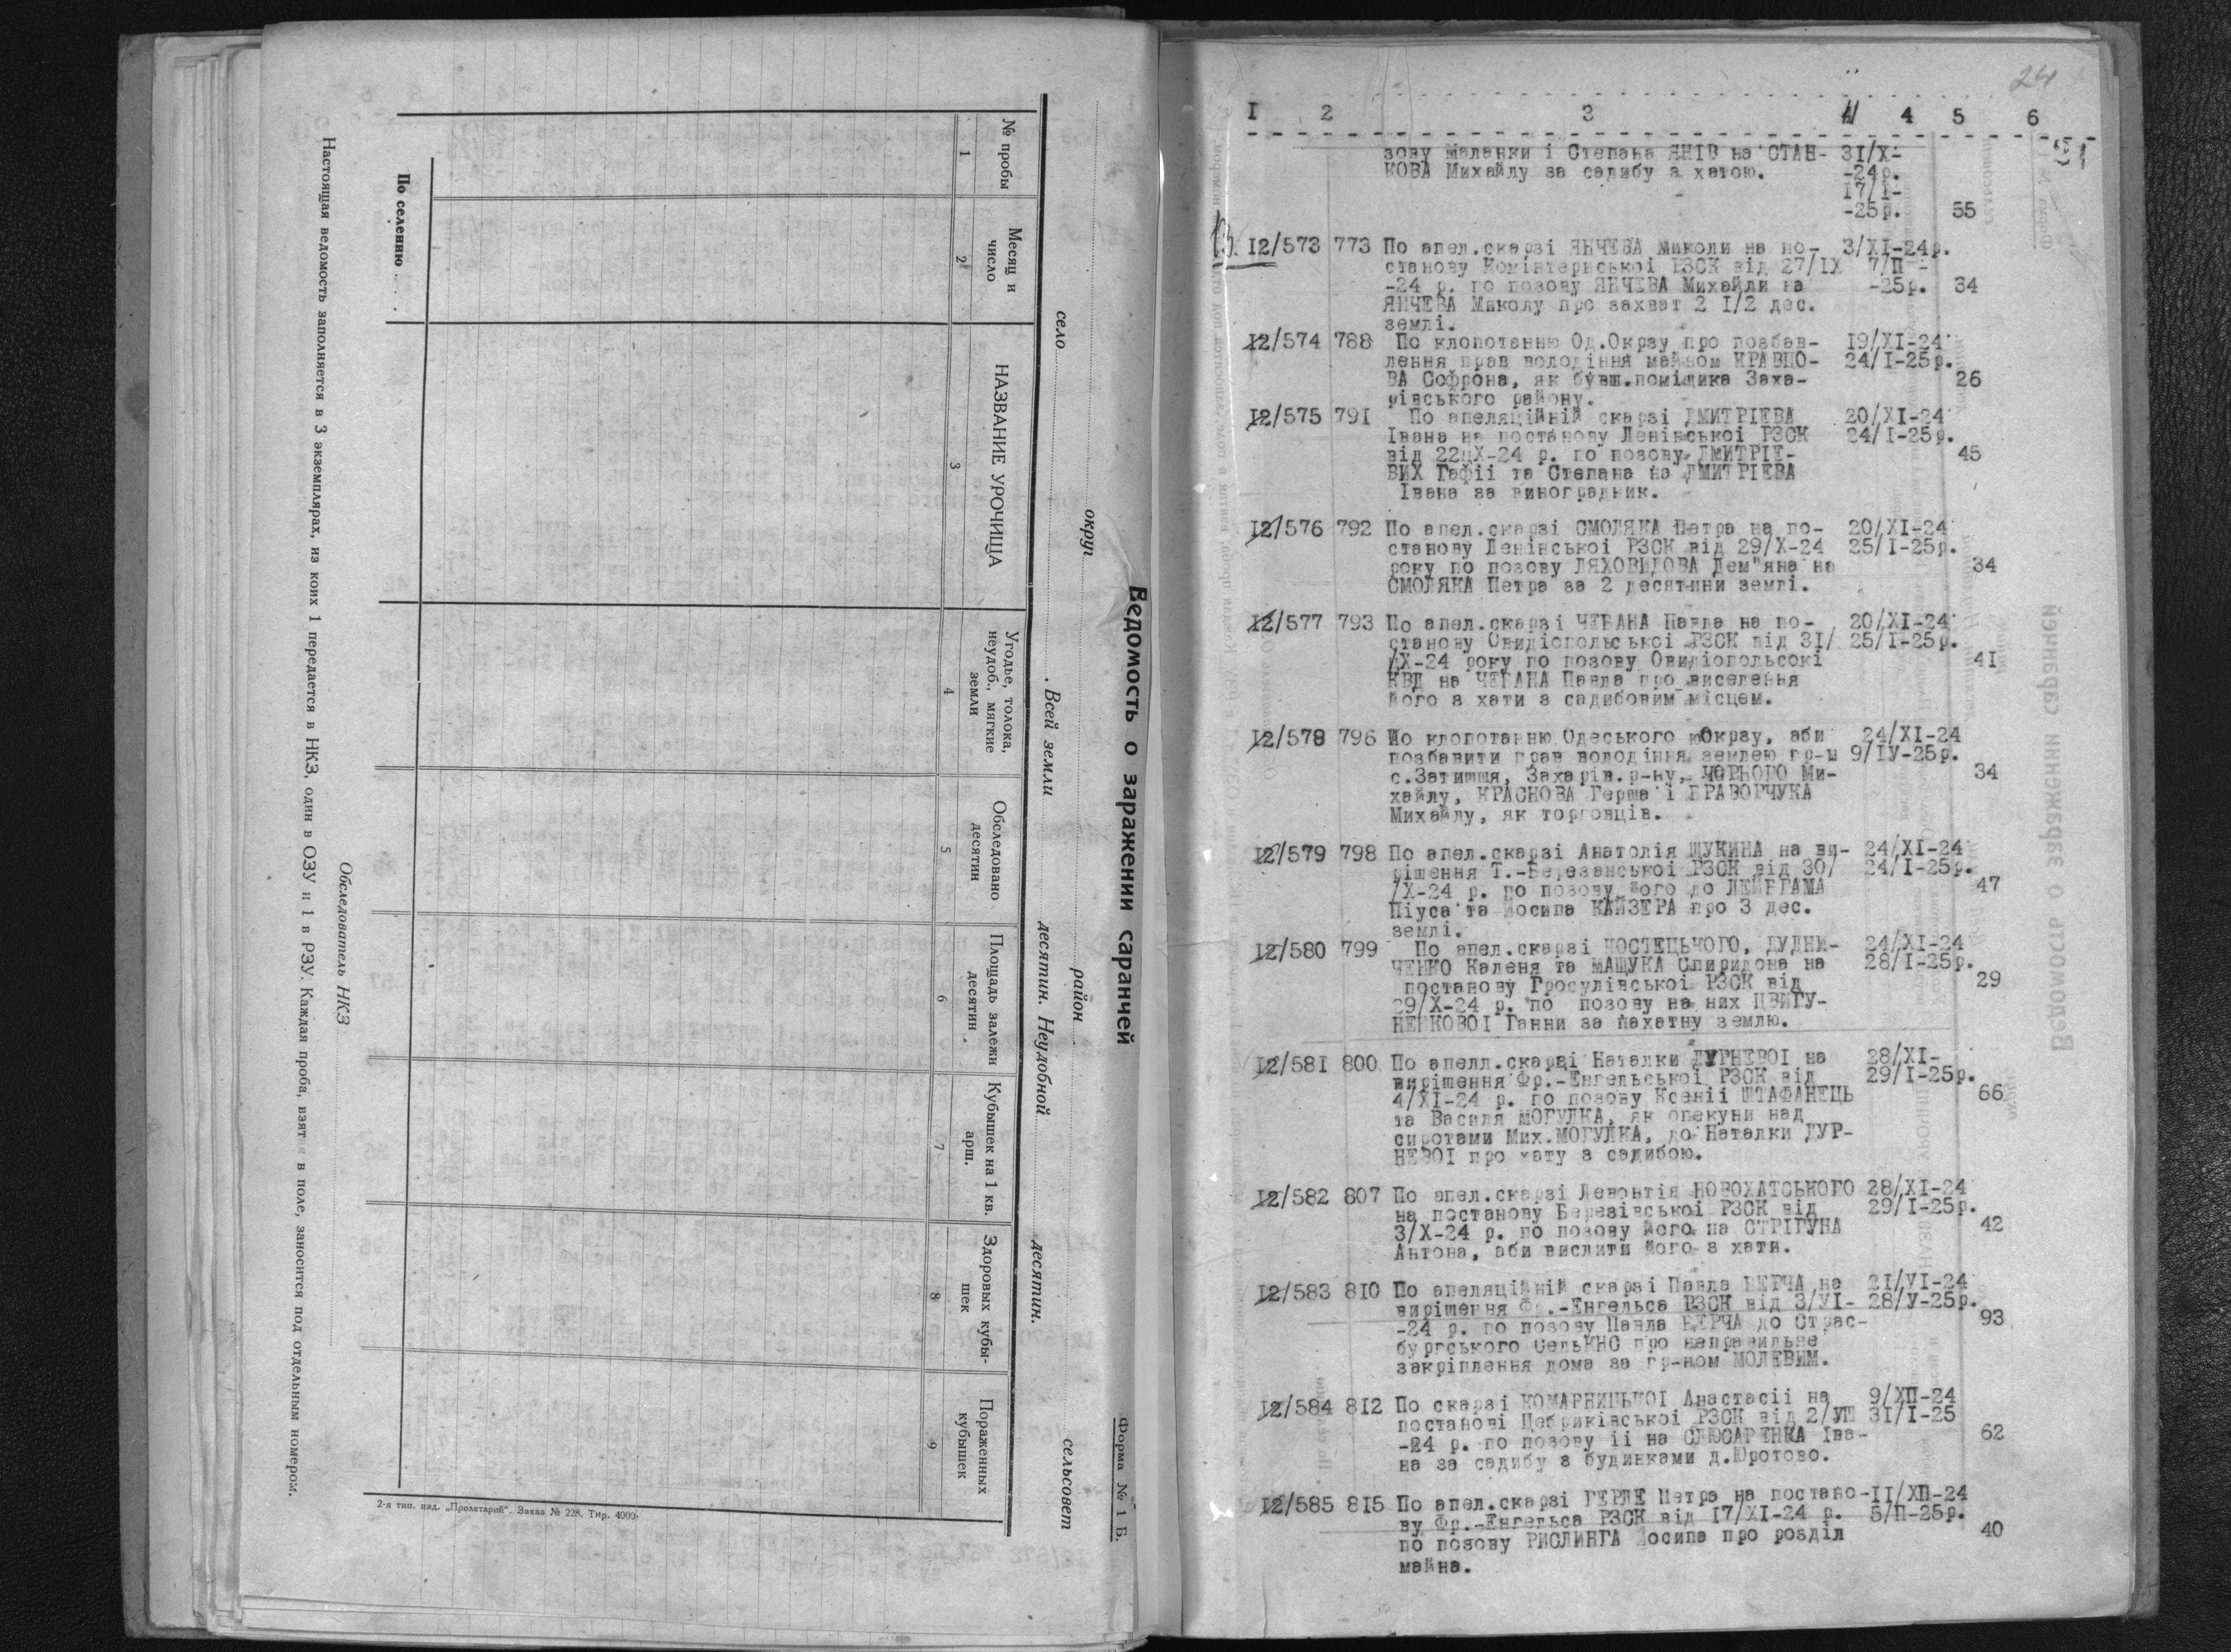 Форма № 1 Б.
Ведомость о заражении саранчей
округ район сельсовет
село Всей земли десятин. Неудобной десятин.
№ пробы
Месяц и число
НАЗВАНИЕ УРОЧИЩА
Угодье, толока, неудоб., мягкие земли
Обследовано десятин
Площадь залежи десятин
Кубышек на 1 кв. арш.
Здоровых кубышек
Пораженных кубышек
1 2 3 4 5 6 7 8 9
По селению
2-я тип. изд. „Пролетарий". Заказ № 228. Тир. 4000
Обследователь НКЗ
Настоящая ведомость заполняется в 3 экземплярах, из коих 1 передается в НКЗ, один в ОЗУ и 1 в РЗУ. Каждая проба, взятая в поле, заносится под отдельным номером.
24
I 2 3 4 5 6
зову Маланки і Степана ЯНІВ на СТАН- 31/X-
КОВА Михайлу за садибу з хатою. -24р.
17/I-
-25р. 55
13.
12/573 773 По апел.скарзі ЯНЧЕВА Миколи на по- 3/XI-24р.
станову Комінтернської РЗСК від 27/IX 7/П -
-24 р. по позову ЯНЧЕВА Михайли на -25р. 34
ЯНЧЕВА Миколу про захват 2 I/2 дес.
землі.
12/574 788 По клопотанню Од.Окрзу про позбав- 19/XI-24
лення прав володіння майном КРАВЦО- 24/I-25р.
ВА Софрона, як бувш.поміщика Заха- 26
рівського району.
12/575 791 По апеляційній скарзі ДМИТРІЕВА 20/XI-24
Івана на постанову Ленінської РЗСК 24/I-25р.
від 22цX-24 р. по позову ДМИТРІЕ- 45
ВИХ Гафії та Степана на ДМИТРІЕВА
Івана за виноградник.
12/576 792 По апел.скарзі СМОЛЯКА Петра на по- 20/XI-24
станову Ленінської РЗСК від 29/X-24 25/I-25р.
року по позову ЛЯХОВИДОВА Дем"яна на 34
СМОЛЯКА Петра за 2 десятини землі.
12/577 793 По апел.скарзі ЧЕБАНА Павла на по- 20/XI-24
станову Овидіопольської РЗСК від 31/ 25/I-25р.
/IX-24 року по позову Овидіопольсокі 41
КВД на ЧЕБАНА Павла про виселення
його з хати з садибовим місцем.
12/578 796 По клопотанню Одеського Окрзу, аби 24/XI-24
позбавити прав володіння землею гр-н 9/IУ-25р.
с.Затишшя, Захарів.р-ну, ЧОРНОГО Ми- 34
хайлу, КРАСНОВА Герша і БРАВОРЧУКА
Михайлу, як торговців.
12/579 798 По апел.скарзі Анатолія ЩУКИНА на ви- 24/XI-24
рішення Т.-Березанської РЗСК від 30/ 24/I-25р.
/X-24 р. по позову його до ЛЕЙБГАМА 47
Піуса та Йосипа КАЙЗЕРА про 3 дес.
землі.
12/580 799 По апел.скарзі КОСТЕЦЬКОГО, ДУДНИ- 24/XI-24
ЧЕНКО Каленя та МАЩУКА Спиридона на 28/I-25р.
постанову Гросулівської РЗСК від 29
29/X-24 р. по позову на них ЦВИГУ-
НЕНКОВОІ Ганни за пахатну землю.
12/581 800 По апелл.скарзі Наталки ДУРНЕВОІ на 28/XI-
вирішення Фр.-Енгельської РЗСК від 29/I-25р.
4/XI-24 р. по позову Ксенії ШТАФАНЕЦЬ 66
та Василя МОГУЛКА, як опекуни над
сиротами Мих.МОГУЛКА, до Наталки ДУР-
НЕВОІ про хату з садибою.
12/582 807 По апел.скарзі Левонтія НОВОХАТСЬКОГО 28/XI-24
на постанову Березівської РЗСК від 29/I-25р.
3/X-24 р. по позову його на СТРІГУНА 42
Антона, аби вислити його з хати.
12/583 810 По апеляційній скарзі Павла БЕРЧА на 21/УI-24
вирішення Фр.-Енгельса РЗСК від 3/УI- 28/У-25р.
-24 р. по позову Павла БЕРЧА до Страс- 93
бургського СельКНС про неправильне
закріплення дома за гр-ном МОЛЕВИМ.
12/584 812 По скарзі КОМАРНИЦЬКОІ Анастасії на 9/ХП-24
постанові Цебриківської РЗСК від 2/УШ 31/I-25
-24 р. по позову її на СЛЮСАРЕНКА Іва- 62
на за садибу з будинками д.Юротово.
12/585 815 По апел.скарзі ГЕРЛЕ Петра на постано- 11/ХП-24
ву Фр.-Енгельса РЗСК від 17/XI-24 р. 5/П-25р.
по позову РИСЛИНГА Йосипа про розділ 40
майна.